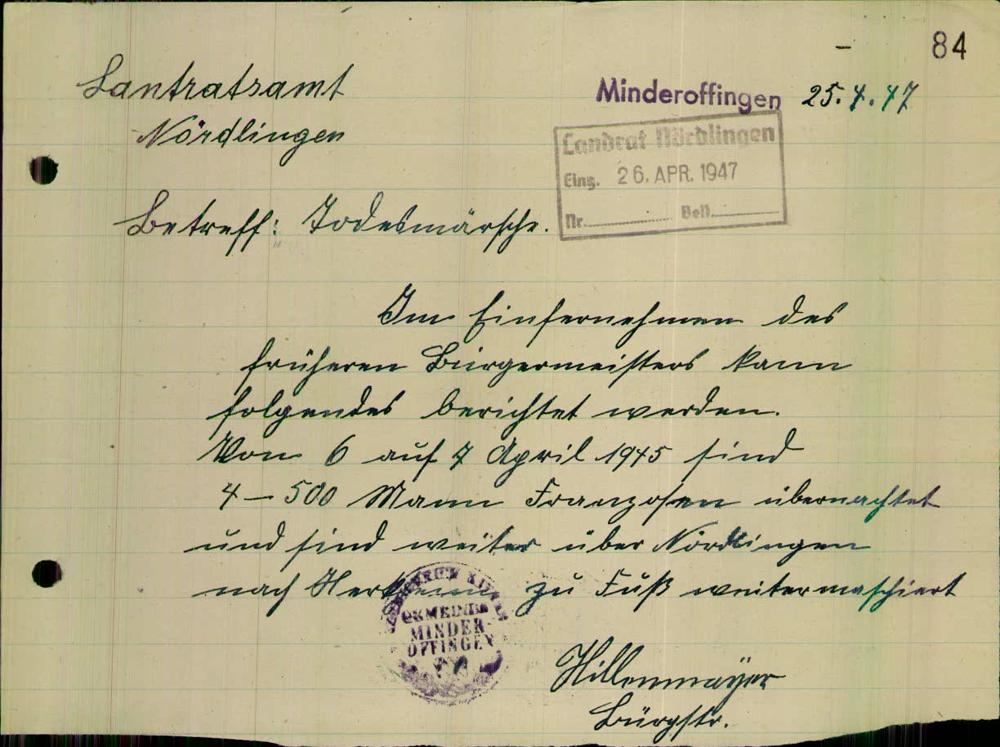 84
Lantratsamt
Nördlingen
Minderoffingen 25.4.47
Landrat Nördlingen
Eing. 26. APR. 1947
Nr. Beil.
Betreff: Todesmärsche.
Im Einfernehmen des
früheren Bürgermeisters kann
folgendes berichtet werden.
Von 6 auf 7 April 1945 sind
4–500 Mann Franzosen übernachtet
und sind weiter über Nördlingen
nach Herkheim zu Fuß weitermaschiert
GEMEINDE
MINDER
OFFINGEN
Hillenmayer
Bürgstr.